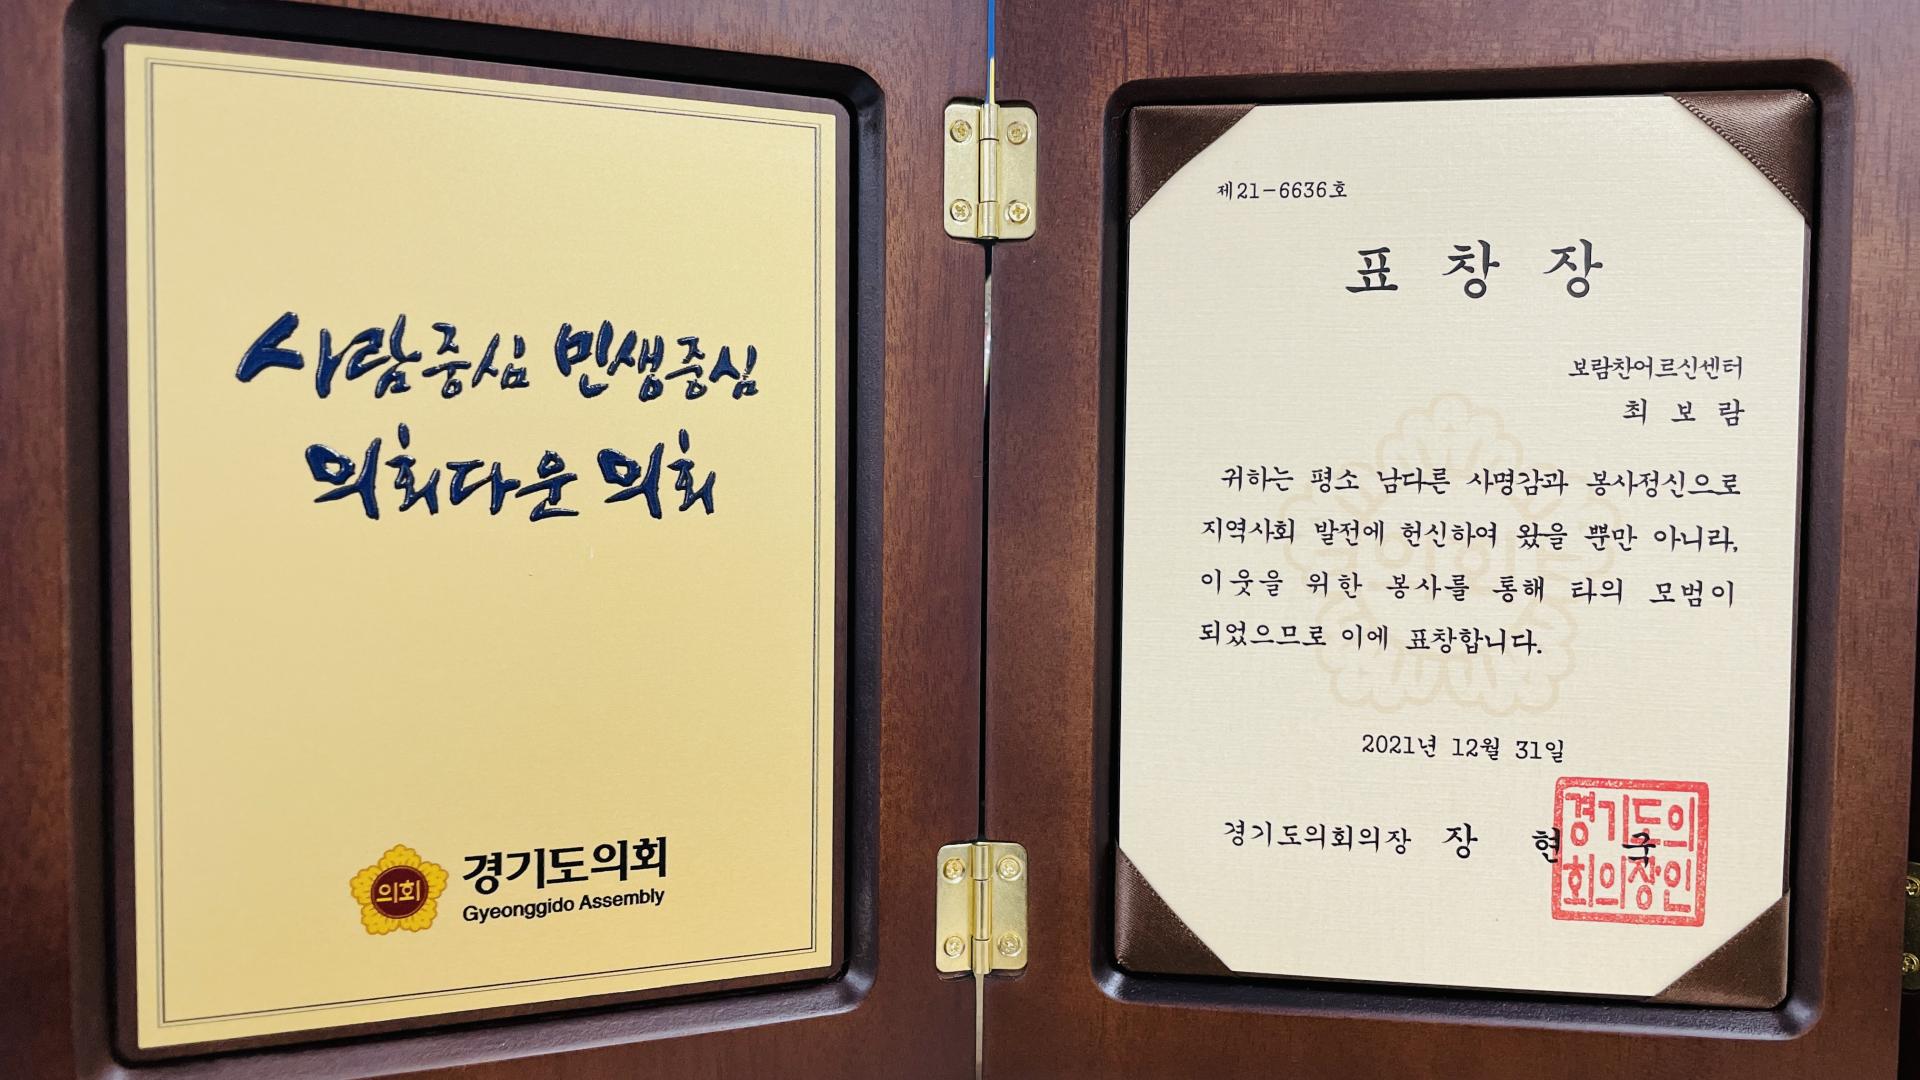 사람중심 민생중심
의회다운 의회
의회
경기도의회
Gyeonggido Assembly
제21-6636호
표 창 장
보람찬어르신센터
최 보 람
귀하는 평소 남다른 사명감과 봉사정신으로
지역사회 발전에 헌신하여 왔을 뿐만 아니라,
이웃을 위한 봉사를 통해 타의 모범이
되었으므로 이에 표창합니다.
2021년 12월 31일
경기도의회의장 장 현 국
경기도의
회의장인